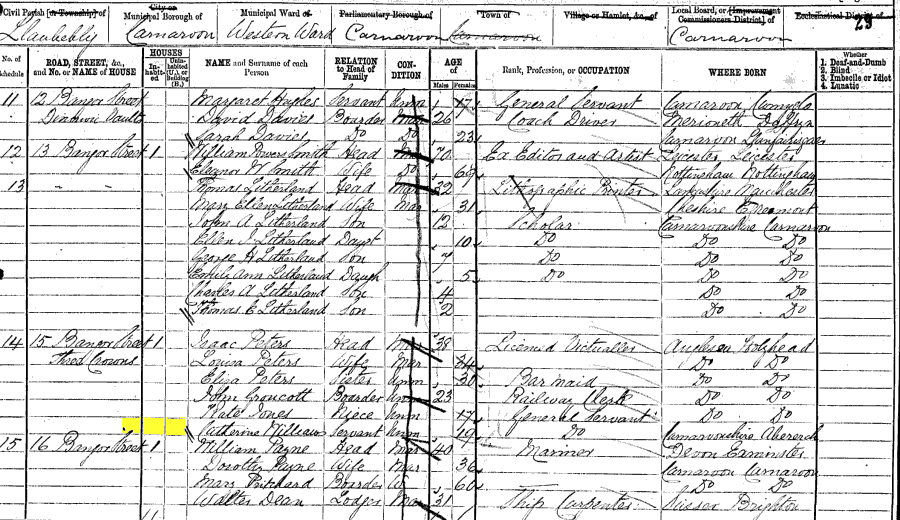 Civil Parish [or Township] of
City or
Municipal Borough of
Municipal Ward of
Parliamentary Borough of
Town of
Village or Hamlet, &c., of
Local Board, or [Improvement
Commissioners District] of
Ecclesiastical District of
23
Llanbeblig Carnarvon Western Ward Carnarvon Carnarvon Carnarvon
No. of
Schedule
ROAD, STREET, &c.,
and No. or NAME of HOUSE
HOUSES
Inhabited
Uninhabited
(U.), or
Building
(B.)
NAME and Surname of each
Person
RELATION
to Head of
Family
CONDITION
AGE
of
Males Females
Rank, Profession, or OCCUPATION
WHERE BORN
Whether
1. Deaf-and-Dumb
2. Blind
3. Imbecile or Idiot
4. Lunatic
11 12 Bangor Street Margaret Hughes Servant Unm 17 General Servant Carnarvon
David Davies Boarder Mar 26 Coach Driver Merioneth
Sarah Davies Do Do 23 Carnarvon
12 13 Bangor Street 1 William Smith Head Mar 70 Ex Editor and Artist Leicester Leicester
Eleanor W Smith Wife Do 69 Nottingham Nottingham
13 " " Thomas Litherland Head Mar 32 Lithographic Printer Lancashire Manchester
Mary Ellen Litherland Wife Mar 31 Cheshire Egremont
John A Litherland Son 12 Scholar Carnarvonshire Carnarvon
Ellen J Litherland Daugt 10 Do Do Do
George H Litherland Son 7 Do Do Do
Emily Ann Litherland Daugh 5 Do Do Do
Charles A Litherland Son 4 Do Do
Thomas E Litherland Son 2 Do Do
14 15 Bangor Street 1 Isaac Peters Head Mar 38 Licensed Victualler Holyhead
Three Crowns Louisa Peters Wife Mar 34 Do Do
Eliza Peters Sister Unm 30 Barmaid Do Do
John Boarder Unm 23 Railway Clerk Do Do
Kate Jones Niece Unm 17 General Servant Do Do
Catherine Williams Servant Unm 19 Do Carnarvonshire Abererch
15 16 Bangor Street 1 William Payne Head Mar 40 Mariner Devon
Dorothy Payne Wife Mar 36 Carnarvon Carnarvon
Mary Pritchard Boarder W 60 Do Do
Walter Dean Lodger Mar 31 Ship Carpenter Sussex Brighton